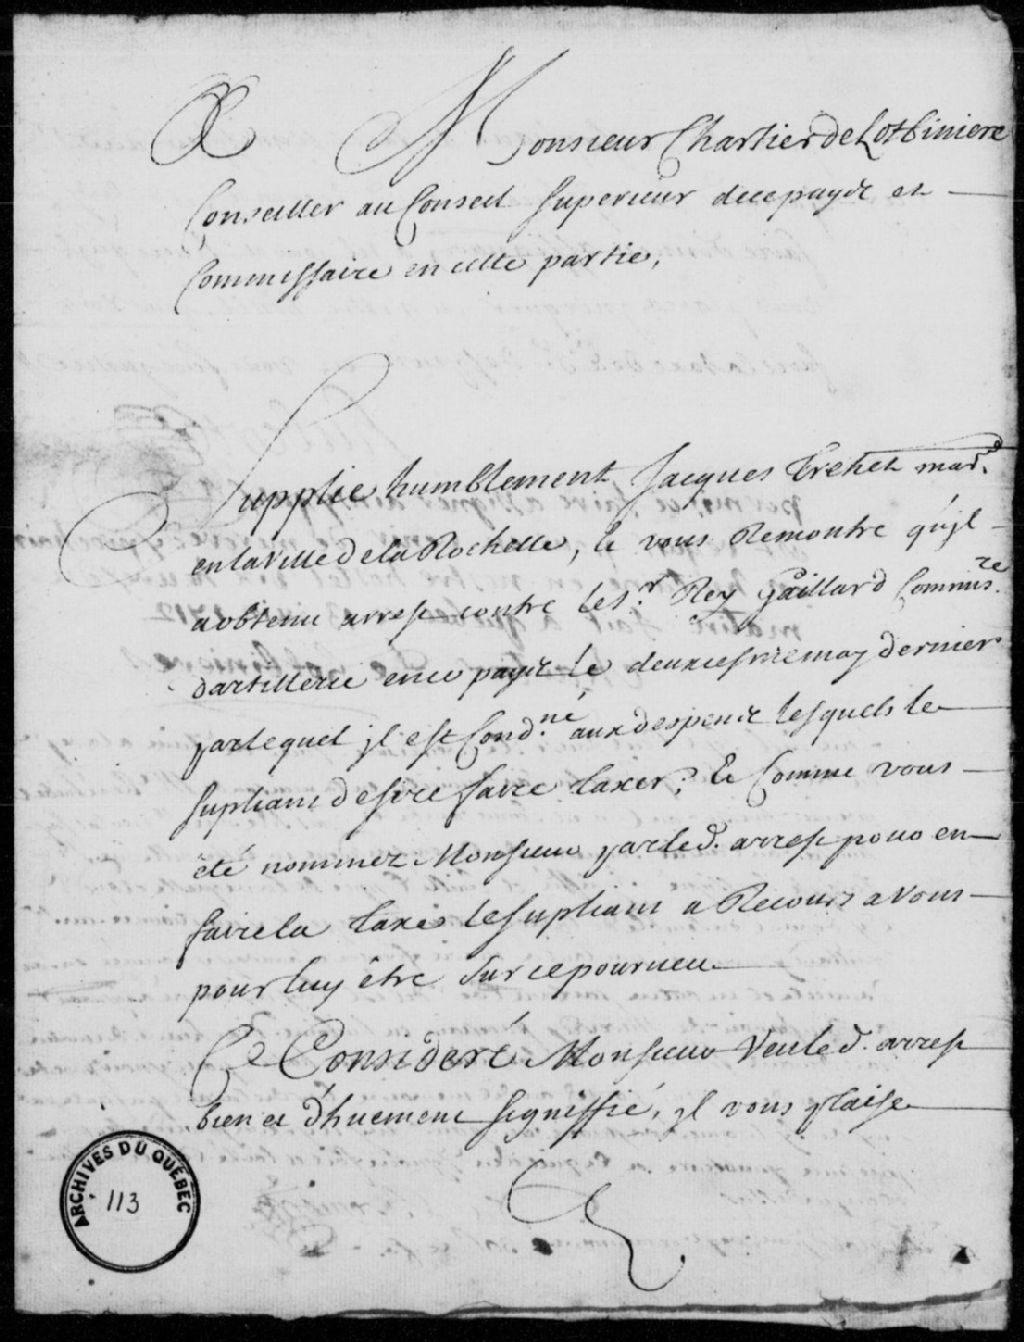 A Monsieur Chartier de Lotbiniere
Conseiller au Conseil superieur de ce payis et
Commissaire en cette partie,
Supplie humblement Jacques Trehet mar.d
en la ville de la Rochelle, et vous Remontre qu'jl
a obtenu arrest contre le s.r Rey Gaillard Commis.re
d'artillerie en ce payis le deuxiesme may dernier
par lequel jl est Cond.né aux despens lesquels le
supliant desire faire taxer; Et Comme vous
êté nommez Monsieur par led. arrest pour en
faire la taxe le supliant a Recours a vous
pour luy être sur ce pourveu
Ce Consideré Monsieur Veu led. arrest
bien et d'huement signiffié, jl vous plaise
ARCHIVES DU QUÉBEC
113